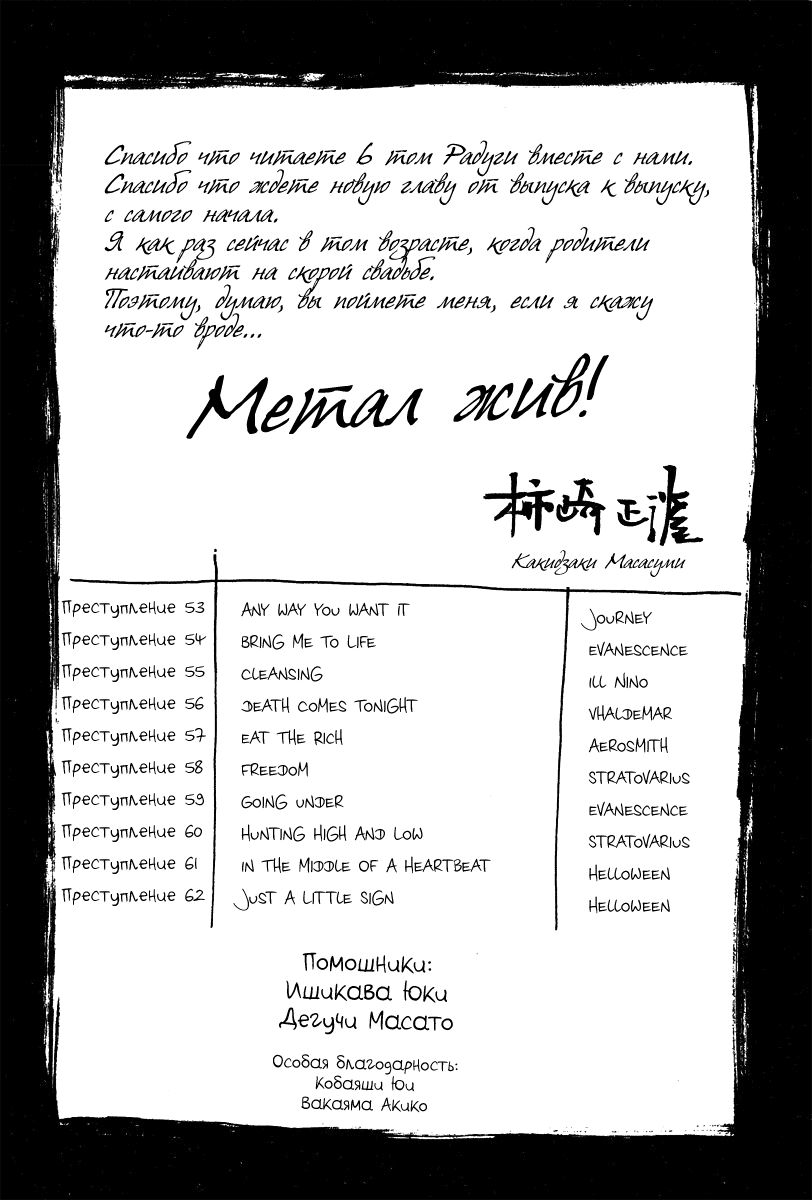 Спасибо что читаете 6 том Радуги вместе с нами.
Спасибо что ждете новую главу от выпуска к выпуску,
с самого начала.
Я как раз сейчас в том возрасте, когда родители
настаивают на скорой свадьбе.
Поэтому, думаю, вы поймете меня, если я скажу
что-то вроде...
Метал жив!
柿崎正澄
Какидзаки Масасуми
Преступление 53 ANY WAY YOU WANT IT JOURNEY
Преступление 54 BRING ME TO LIFE EVANESCENCE
Преступление 55 CLEANSING ILL NINO
Преступление 56 DEATH COMES TONIGHT VHALDEMAR
Преступление 57 EAT THE RICH AEROSMITH
Преступление 58 FREEDOM STRATOVARIUS
Преступление 59 GOING UNDER EVANESCENCE
Преступление 60 HUNTING HIGH AND LOW STRATOVARIUS
Преступление 61 IN THE MIDDLE OF A HEARTBEAT HELLOWEEN
Преступление 62 JUST A LITTLE SIGN HELLOWEEN
Помошники:
Ишикава Юки
Дегучи Масато
Особая благодарность:
Кобаяши Юи
Вакаяма Акико